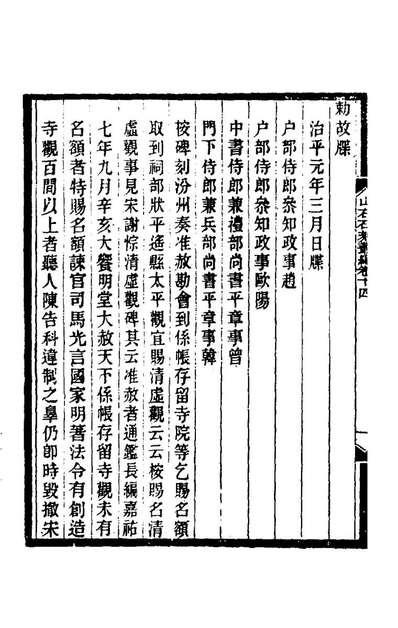 勅故牒
治平元年三月日牒
户部侍郎叅知政事趙
户部侍郎叅知政事歐陽
中書侍郎兼禮部尚書平章事曾
門下侍郎兼兵部尚書平章事韓
按碑刻汾州奏准赦勘會到係帳存留寺院等乞賜名額
取到祠部狀平遙縣太平觀宜賜清虛觀云云桉賜名清
虛觀事見宋謝悰清虛觀碑其云准赦者通鑑長編嘉祐
七年九月辛亥大饗明堂大赦天下係帳存留寺觀未有
名額者特賜名額諫官司馬光言國家明著法令有創造
寺觀百間以上者聽人陳告科違制之辠仍卽時毀撤宋
山右石刻叢編卷十四